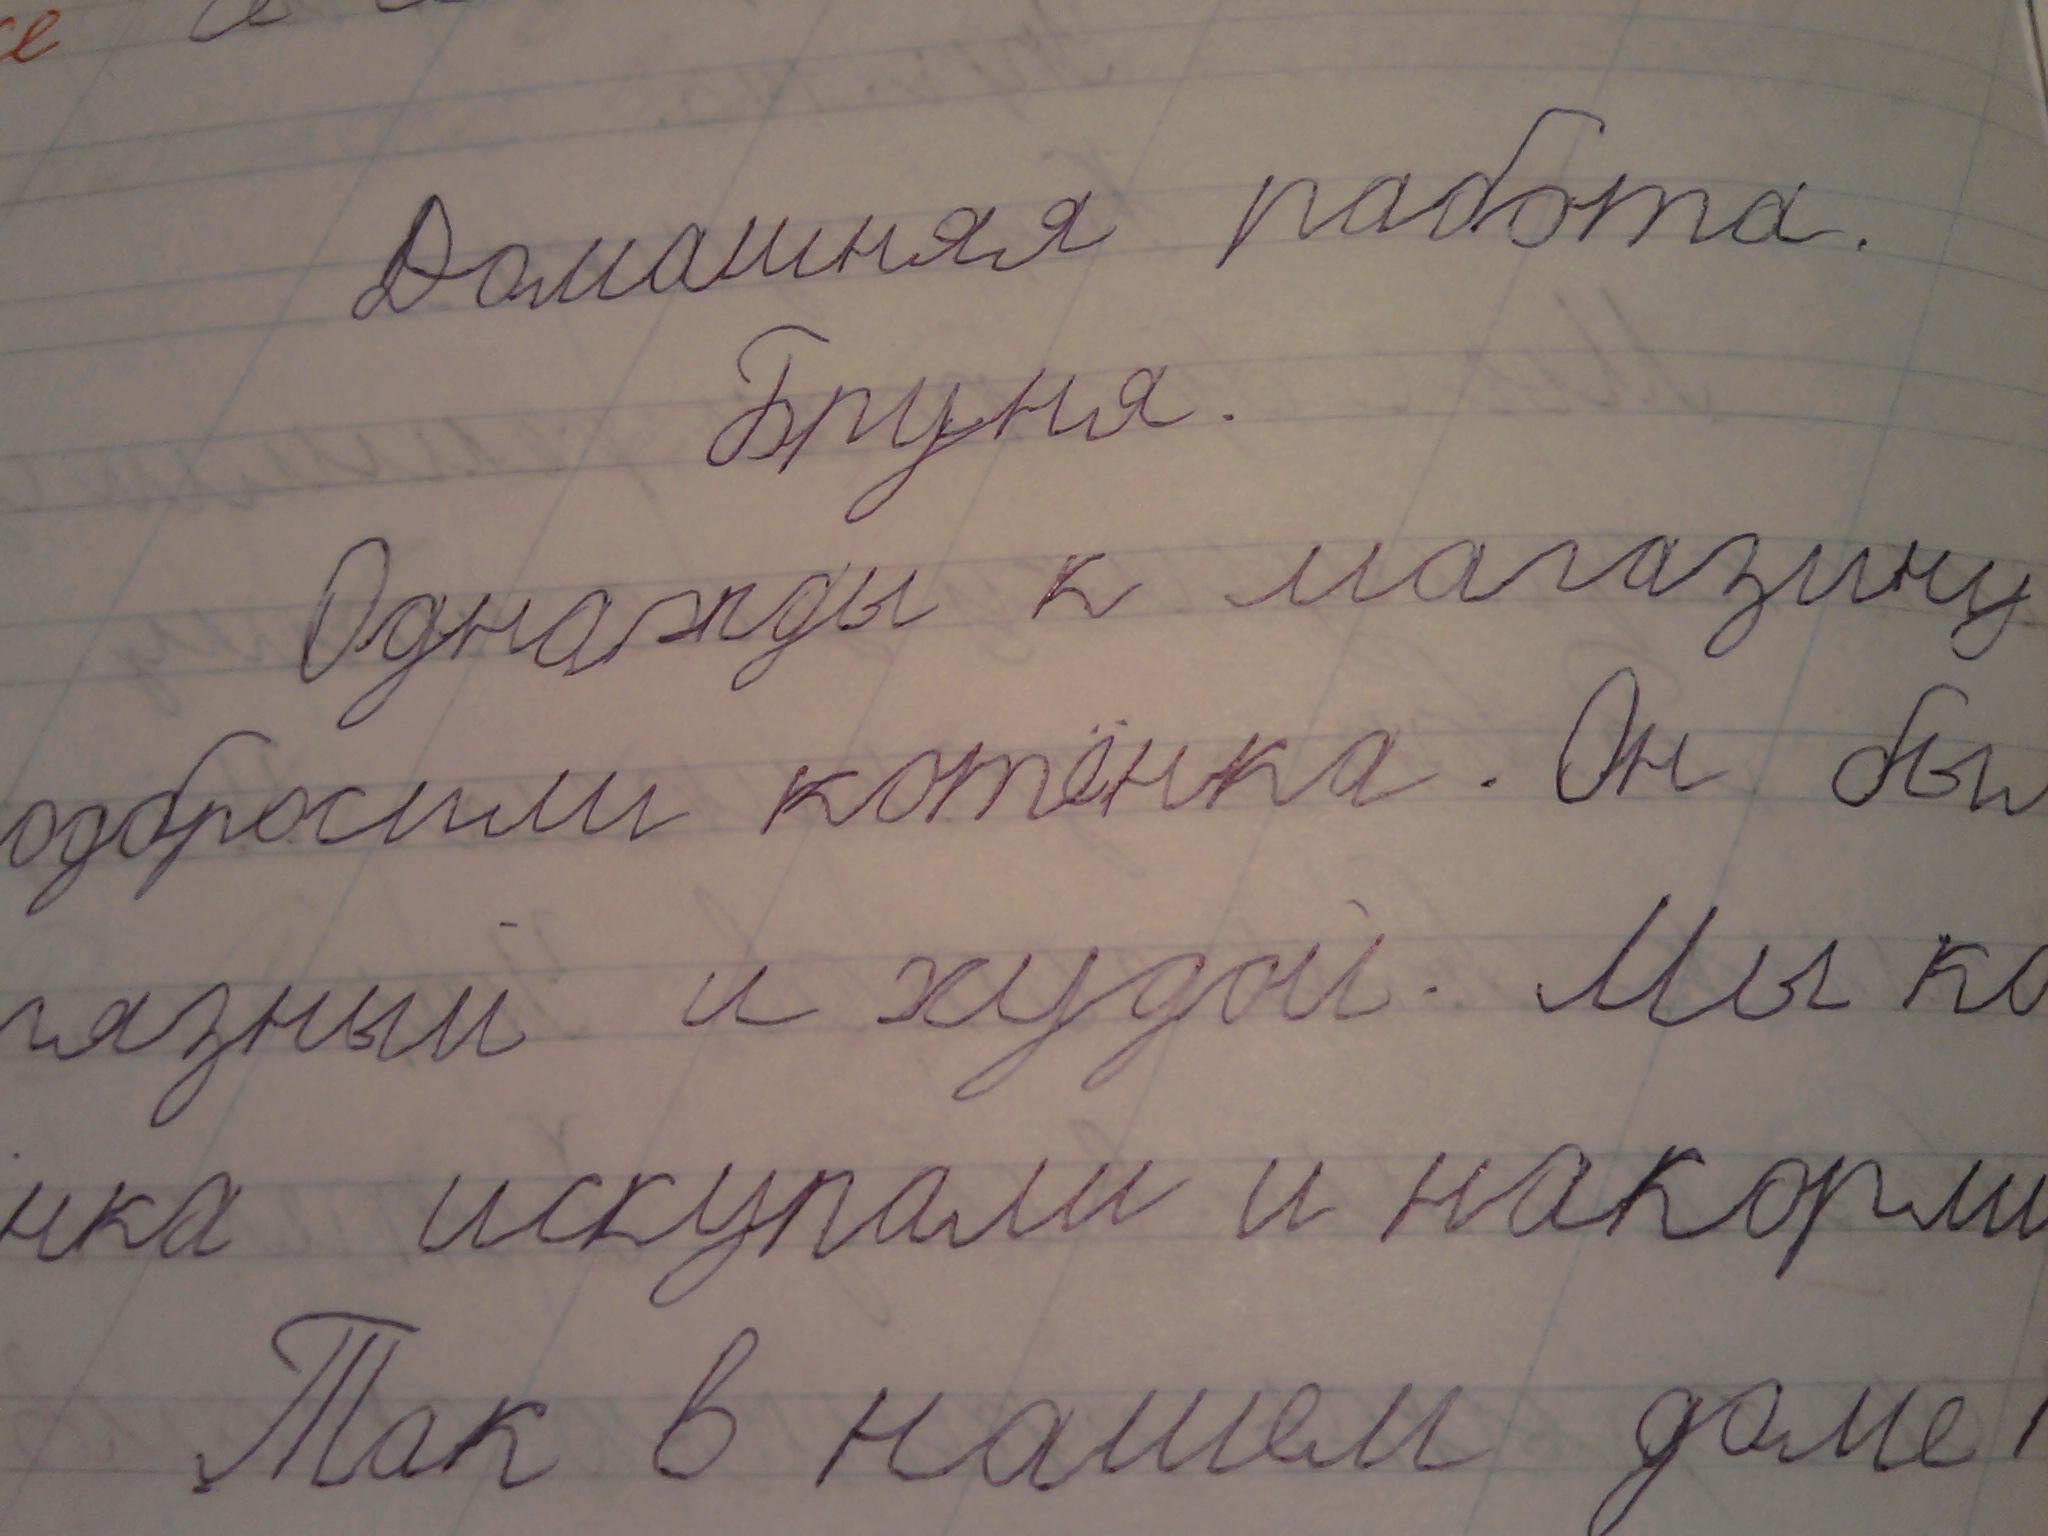 Домашняя работа.
Бруня.
Однажды к магазину
одбросили котёнка. Он бы
язный и худой. Мы ко
нка искупали и накорми
Так в нашем доме